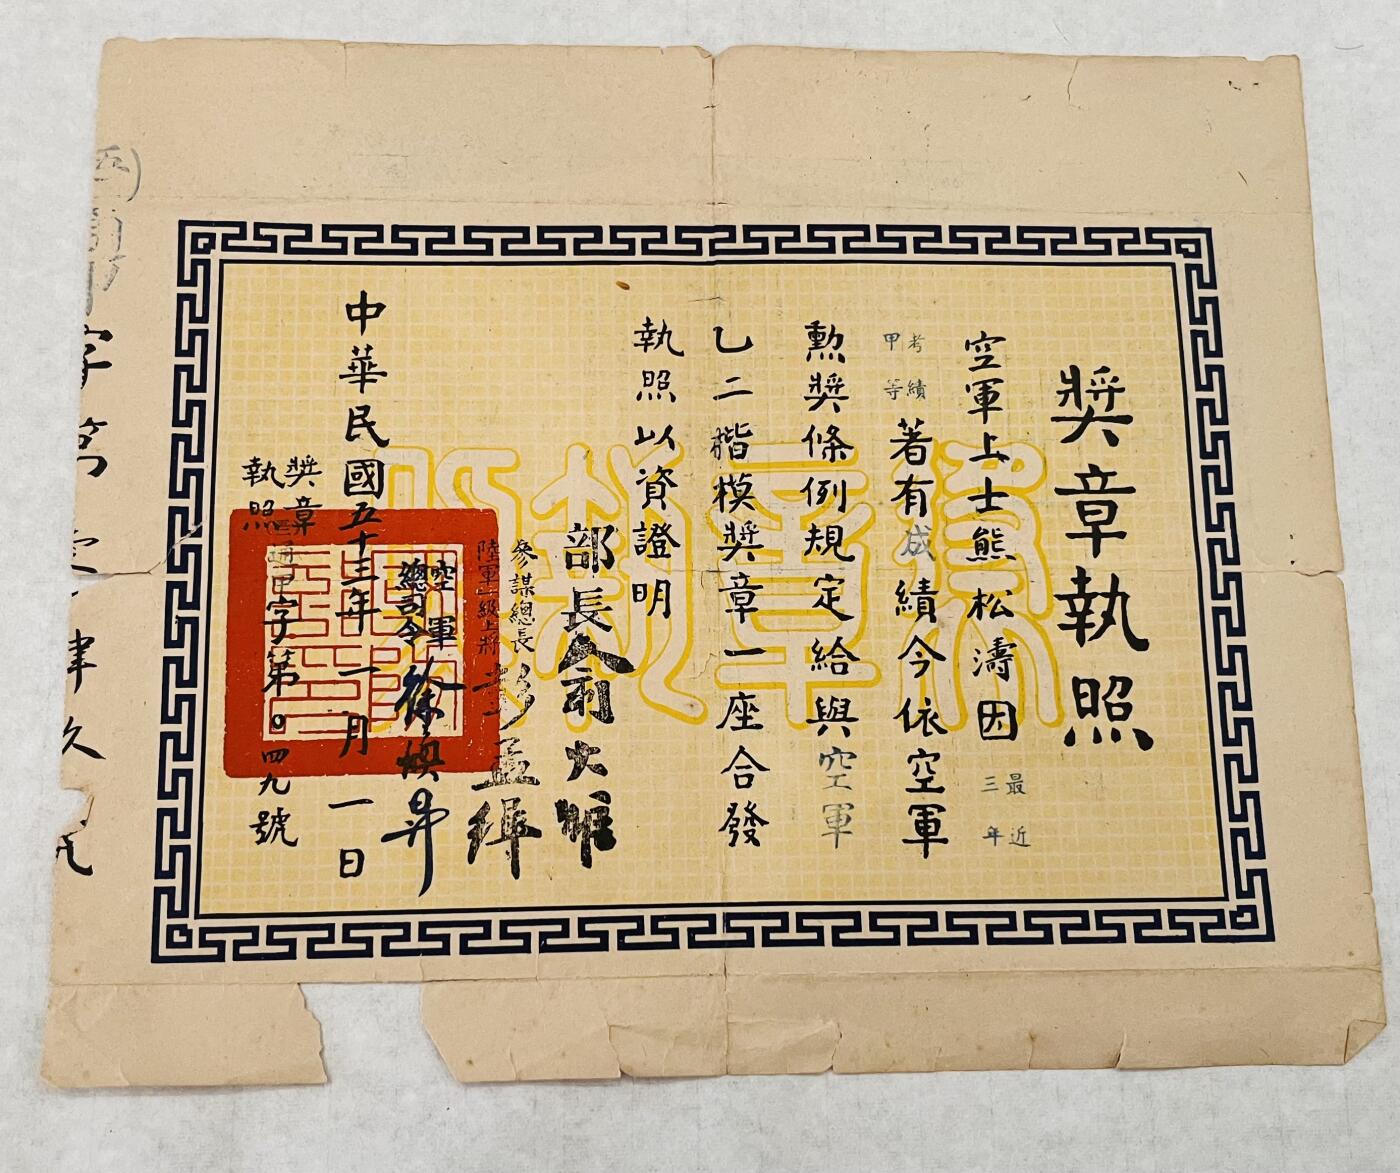 獎章執照
空軍上士熊松濤因最近三年
考績甲等著有成績今依空軍
勲獎條例規定給與空軍
乙二楷模獎章一座合發
執照以資證明
部長俞大維
參謀總長
陸軍一級上將彭孟緝
空軍總司令徐煥昇
中華民國五十三年一月一日
獎章執照通甲字第〇四九號
字第